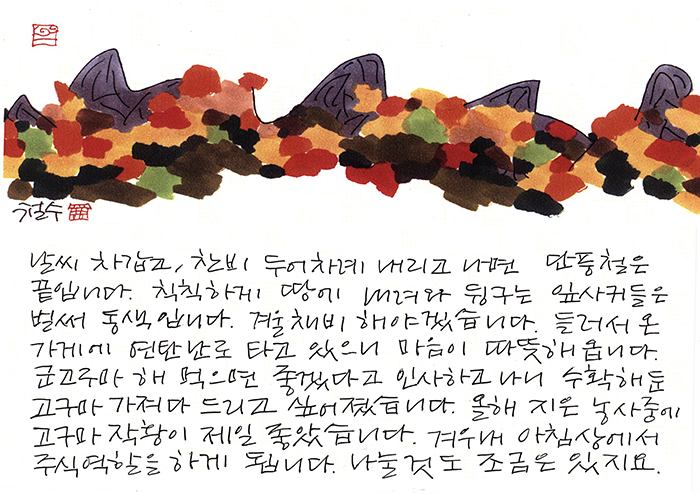 철수
날씨 차갑고, 찬비 두어차례 내리고 나면 단풍철은
끝입니다. 칙칙하게 땅에 내려와 뒹구는 잎사귀들은
벌써 동색입니다. 겨울채비 해야겠습니다. 들러서 온
가게에 연탄난로 타고 있으니 마음이 따뜻해옵니다.
군고구마 해 먹으면 좋겠다고 인사하고 나니 수확해둔
고구마 가져다 드리고 싶어졌습니다. 올해 지은 농사중에
고구마 작황이 제일 좋았습니다. 겨우내 아침상에서
주식역할을 하게 됩니다. 나눌것도 조금은 있지요.